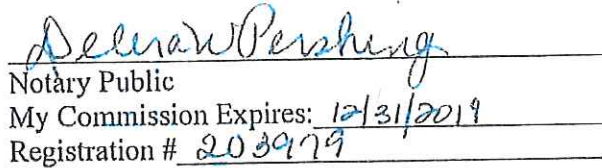 Debra W Pershing
Notary Public
My Commission Expires: 12/31/2019
Registration # 203979